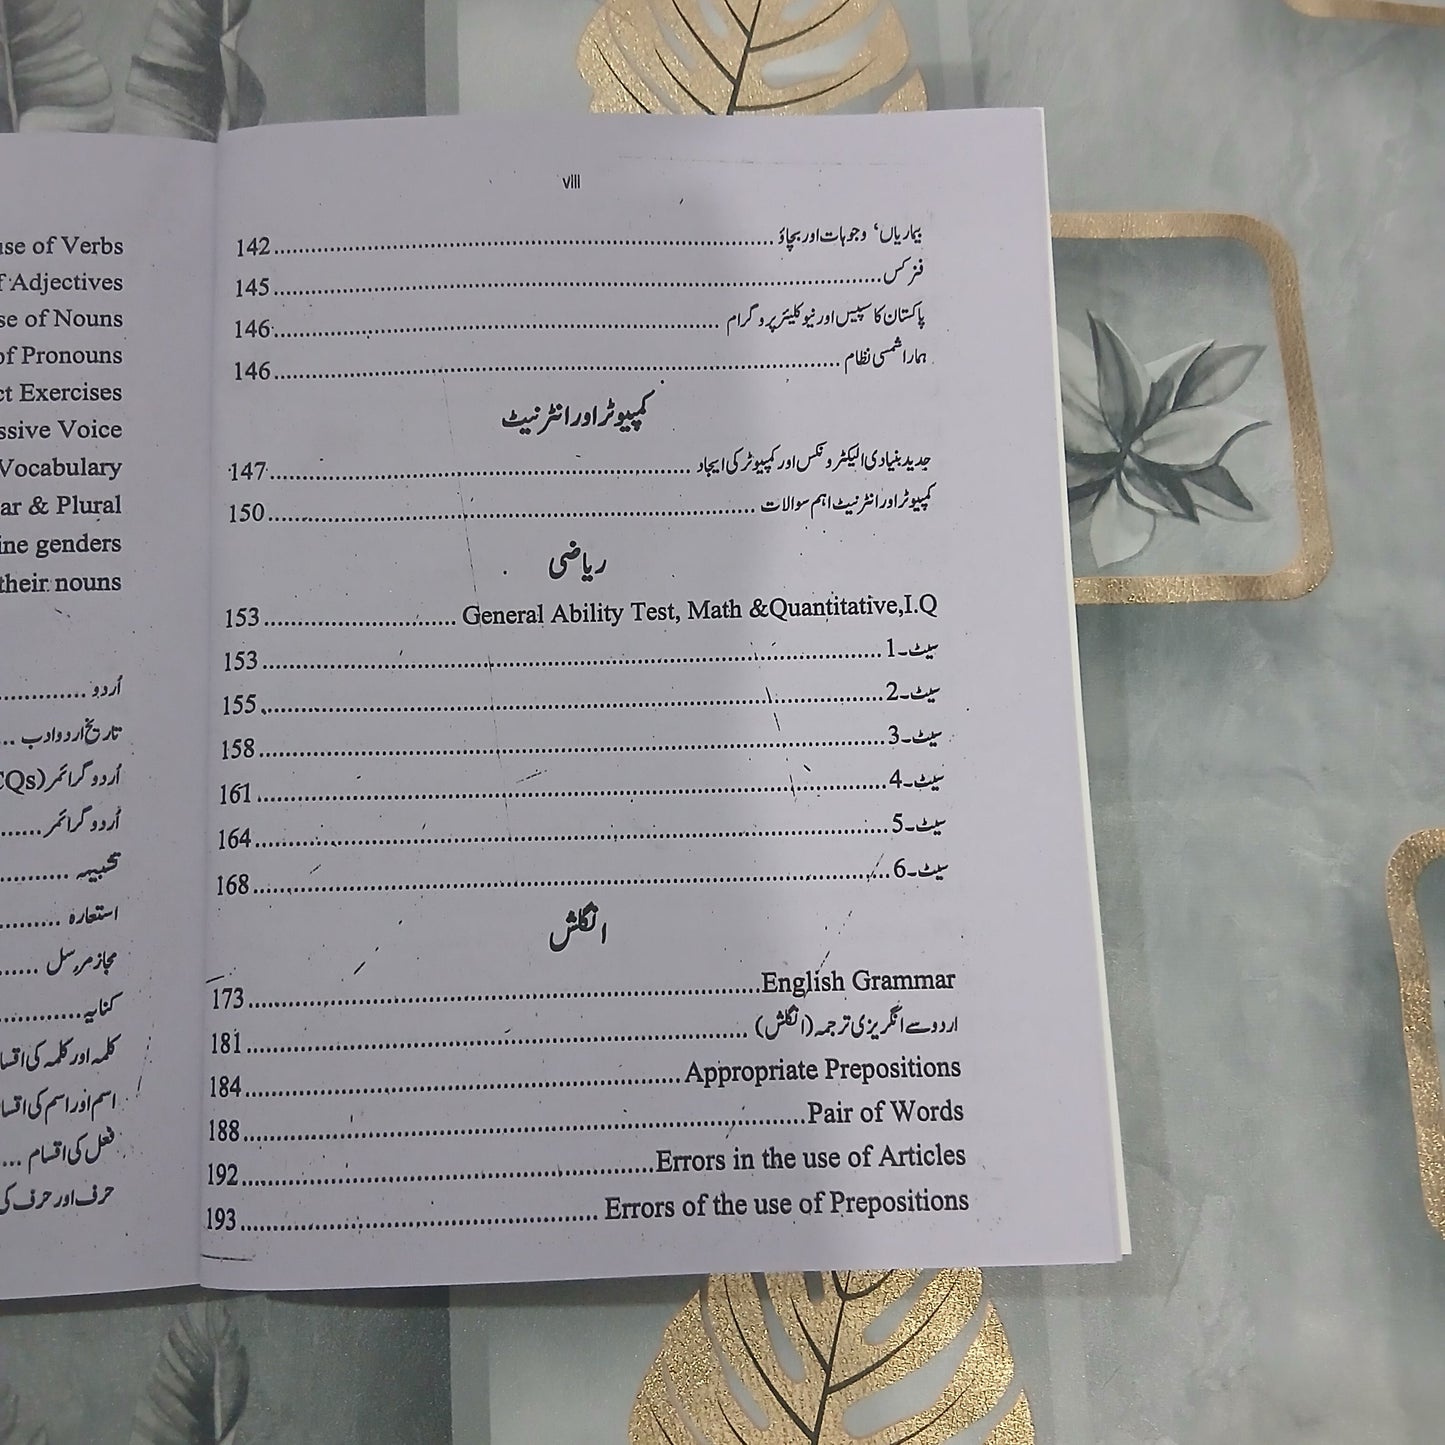 viii
بیماریاں‘ وجوہات اور بچاؤ ........ 142
فزکس ........ 145
پاکستان کا سپیس اور نیوکلیئر پروگرام ........ 146
ہمارا شمسی نظام ........ 146
کمپیوٹر اور انٹرنیٹ
جدید بنیادی الیکٹرونکس اور کمپیوٹر کی ایجاد ........ 147
کمپیوٹر اور انٹرنیٹ اہم سوالات ........ 150
ریاضی
153 ........ General Ability Test, Math &Quantitative,I.Q
سیٹ۔1 ........ 153
سیٹ۔2 ........ 155
سیٹ۔3 ........ 158
سیٹ۔4 ........ 161
سیٹ۔5 ........ 164
سیٹ۔6 ........ 168
انگلش
173 ........ English Grammar
اردو سے انگریزی ترجمہ (انگلش) ........ 181
184 ........ Appropriate Prepositions
188 ........ Pair of Words
192 ........ Errors in the use of Articles
193 ........ Errors of the use of Prepositions
use of Verbs
Adjectives
of Nouns
of Pronouns
Exercises
Voice
Vocabulary
& Plural
genders
their nouns
اُردو ........
تاریخ اردو ادب ...
اُردو گرائمر (
اُردو گرائمر ........
تشبیہہ ........
استعارہ ........
مجاز مرسل ......
کنایہ ........
کلمہ اور کلمہ کی
اسم اور اسم کی
فعل کی اقسام ...
حرف اور حرف کی